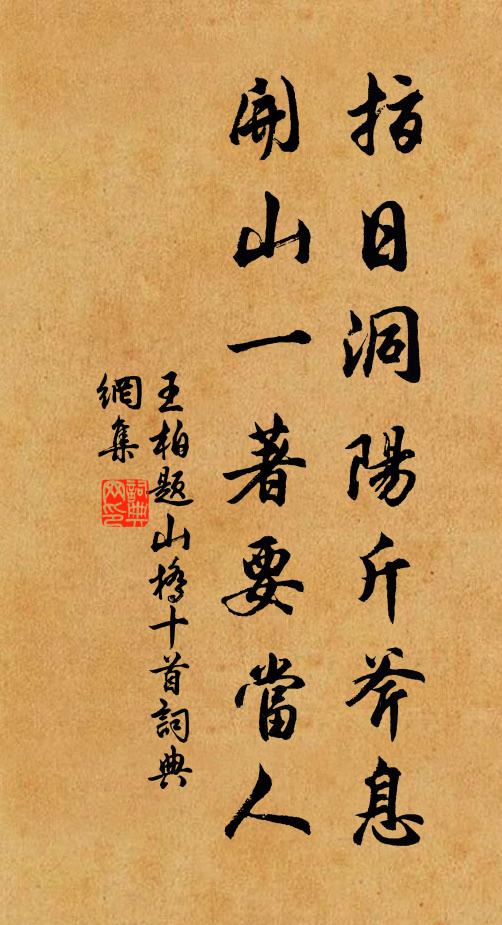 指日洞陽斤斧息
開山一著要當人
王柏題山橋十首詞典
網集
詞典網印